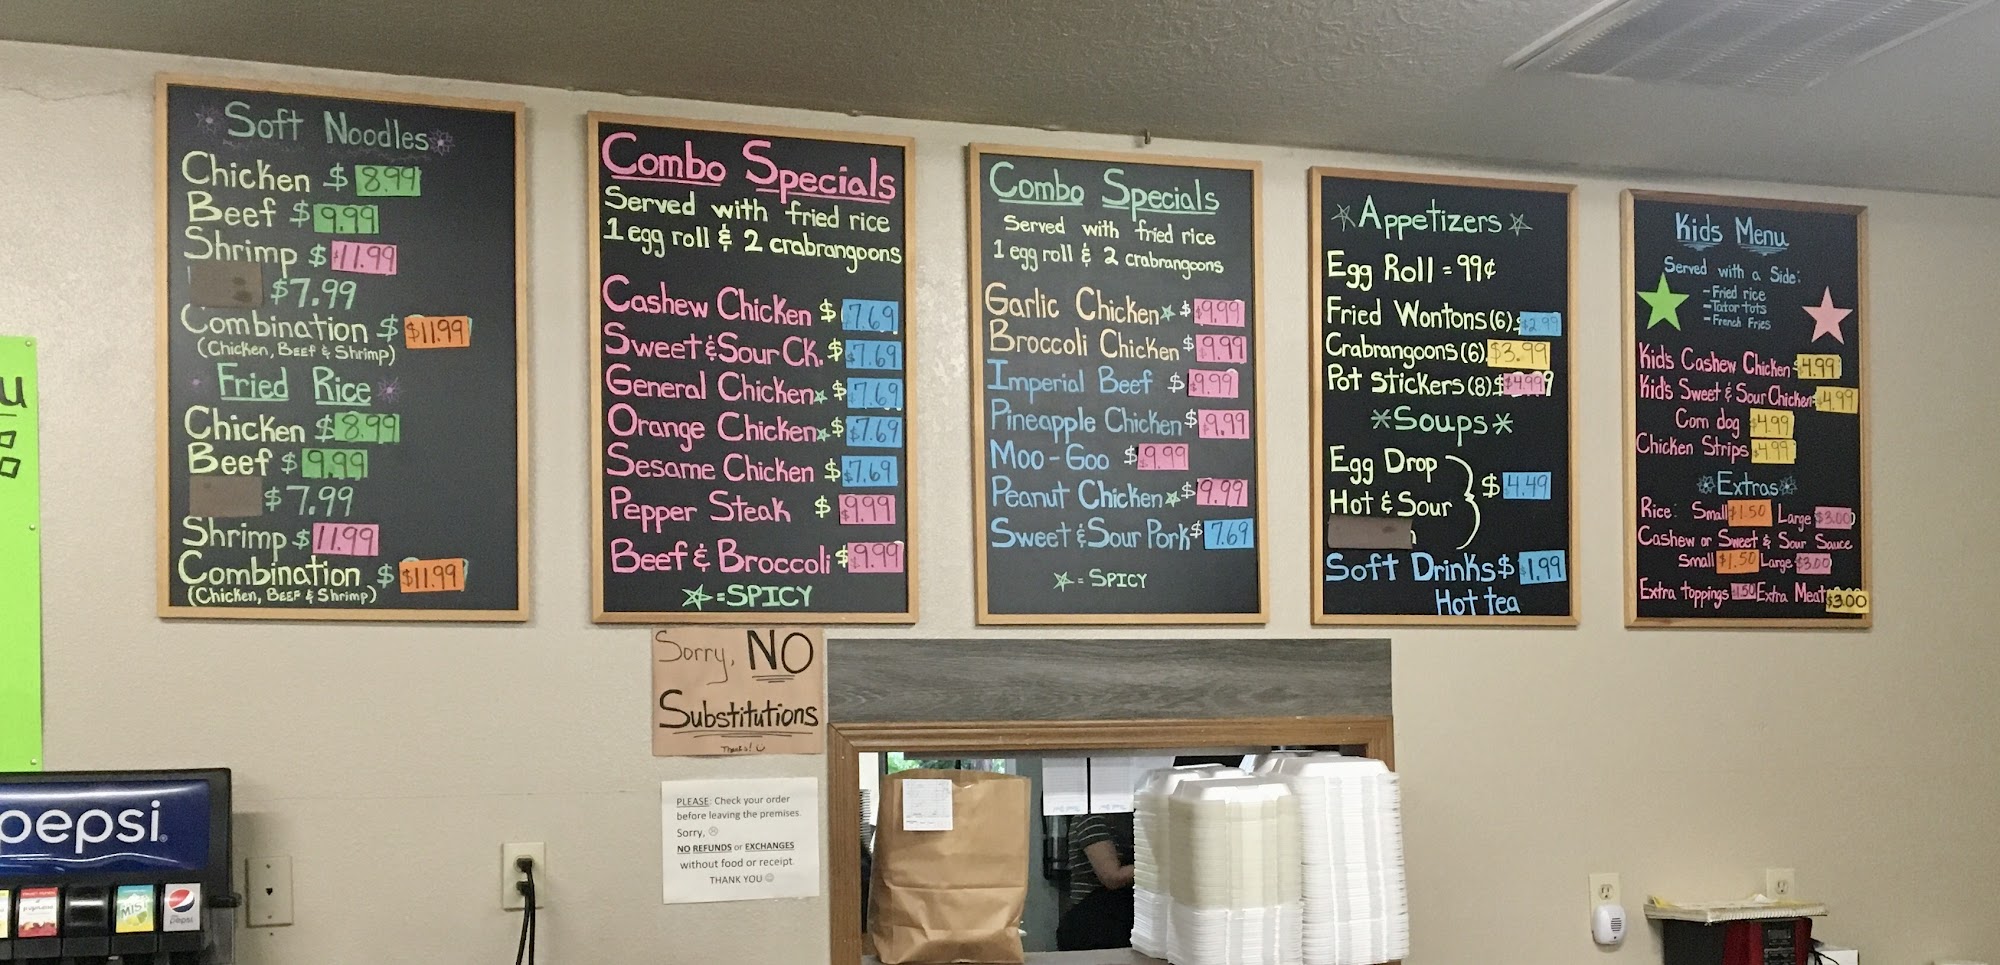 Soft Noodles
Chicken $ 8.99
Beef $ 9.99
Shrimp $ $11.99
$7.99
Combination $ $11.99
(Chicken, Beef & Shrimp)
Fried Rice
Chicken $ 8.99
Beef $ 9.99
$7.99
Shrimp $ 11.99
Combination $ $11.99
(Chicken, Beef & Shrimp)
Combo Specials
Served with fried rice
1 egg roll & 2 crabrangoons
Cashew Chicken $ 7.69
Sweet & Sour CK. $ $7.69
General Chicken $ $7.69
Orange Chicken $ $7.69
Sesame Chicken $ $7.69
Pepper Steak $ $9.99
Beef & Broccoli $ $9.99
= SPICY
Combo Specials
Served with fried rice
1 egg roll & 2 crabrangoons
Garlic Chicken $ $9.99
Broccoli Chicken $ $9.99
Imperial Beef $ $9.99
Pineapple Chicken $ $9.99
Moo-Goo $ $9.99
Peanut Chicken $ $9.99
Sweet & Sour Pork $ 7.69
= SPICY
Appetizers
Egg Roll = 99¢
Fried Wontons (6) $2.99
Crabrangoons (6) $3.99
Pot Stickers (8) $ $4.99
*Soups*
Egg Drop
Hot & Sour
$ 4.49
Soft Drinks $ $1.99
Hot tea
Kids Menu
Served with a Side:
- Fried rice
- Tator tots
- French Fries
Kid's Cashew Chicken $4.99
Kid's Sweet & Sour Chicken $4.99
Corn dog $4.99
Chicken Strips $4.99
Extras
Rice: Small $1.50 Large $3.00
Cashew or Sweet & Sour Sauce
Small $1.50 Large $3.00
Extra toppings $1.50 Extra Meat $3.00
Sorry, NO
Substitutions
Thanks!
PLEASE: Check your order
before leaving the premises.
Sorry, ☹
NO REFUNDS or EXCHANGES
without food or receipt.
THANK YOU ☺
pepsi
MIST
pepsi